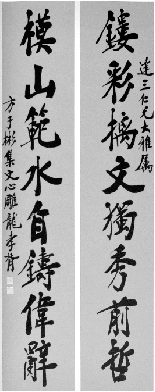 鏤彩摛文獨秀前哲
達三仁兄大雅屬
模山範水自鑄偉辭
方于彬集文心雕龍李育